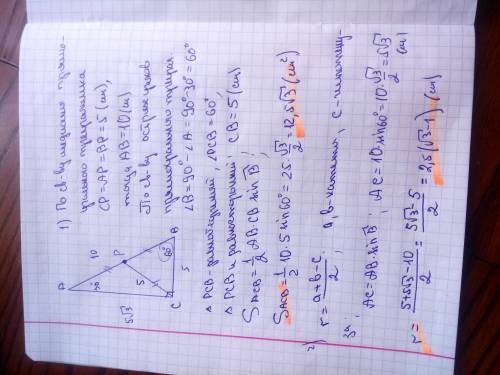 1) По св-ву медианы прямо-
угольного треугольника
CP=AP=BP=5 (cm),
тогда AB=10(cm)
По св-ву острых углов
прямоугольного треуг.
∠B=90°-∠A=90°-30°=60°
A
10
P
30
5√3
5
60°
C
5
B
△ PCB - равнобедренный, ∠PCB=60°,
△ PCB и равносторонний; CB=5 (cm)
S_ACB=1/2 AB·CB·sin B;
S_ACB=1/2·10·5·sin60°=25·√3/2=12,5√3 (cm²)
2) r=(a+b-c)/2; a,b-катеты, c-гипотену-
за; AC=AB·sin B; AC=10·sin60°=10·√3/2=5√3 (cm)
r=(5+5√3-10)/2=(5√3-5)/2=2,5(√3-1) (cm)